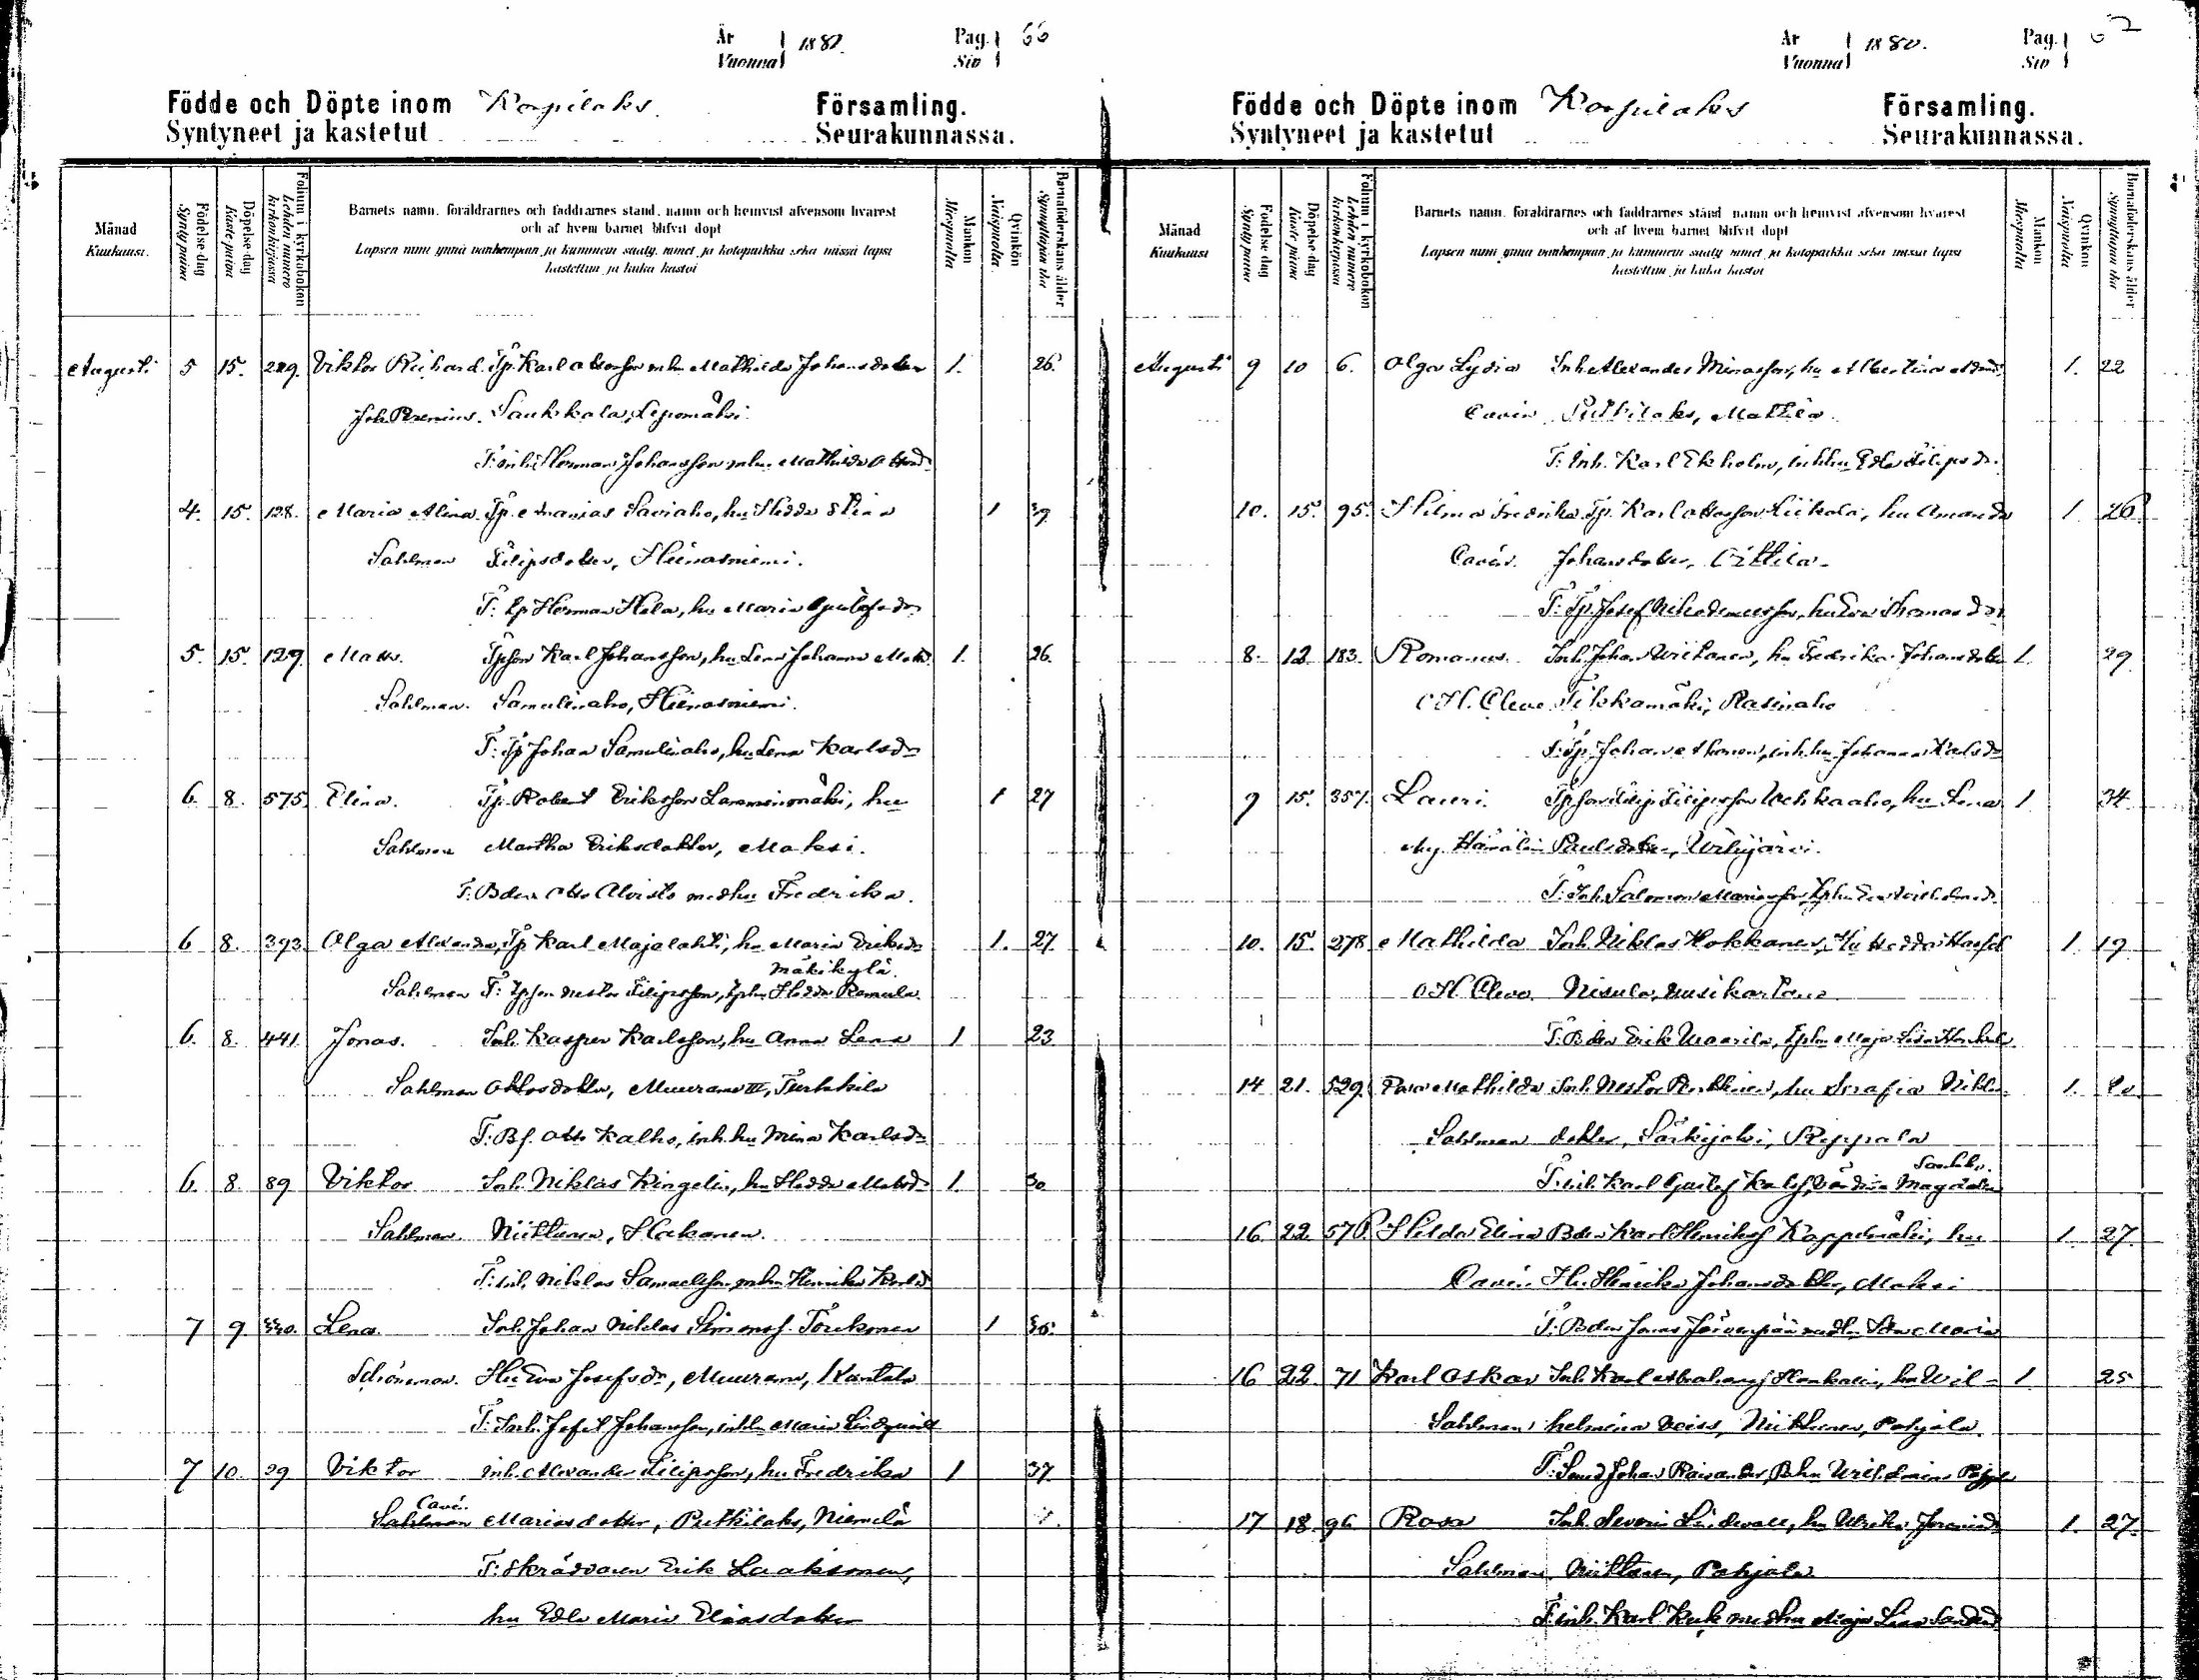 År 1880. Pag. 66
Vuonna Siv
Födde och Döpte inom Korpilaks Församling.
Syntyneet ja kastetut Seurakunnassa.
Månad Kuukausi. Födelse-dag Synty päivä Döpelse-dag Kaste päivä Folium i kyrkoboken Lehden numero kirkonkirjassa Barnets namn, föräldrarnes och faddrarnes stånd, namn och hemvist äfvensom hvarest och af hvem barnet blifvit döpt Lapsen nimi ynnä vanhempain ja kummein sääty, nimet ja kotopaikka sekä missä lapsi kastettiin ja kuka kastoi Mankön Miespuolta Qvinkön Naispuolta Barnaföderskans ålder Synnyttäjän ikä
Augusti 5 15. 289. Viktor Richard. Tp. Karl Ottosson m hu Mathilda Johansdotter 1. 26.
Saukkola, Lepomäki
F: inh. Herman Johansson m hu Mathilda Ottosd.
4. 15. 128. Maria Alina. Tp. Ananias Saviaho, hu Hedda Stina 1 39
Sahlman Filipsdotter, Hiinasniemi.
F: Tp Herman Hela, hu Maria Gustafsdr
5. 15. 129. Mats. Tpson Karl Johansson, hu Lena Johanna Matsd. 1. 26.
Sahlman. Samulinaho, Hiinasniemi.
F: Tp Johan Samulinaho, hu Lena Karlsdr
6 8. 575 Elina. Tp. Robert Eriksson Lamminmäki, hu 1 27
Sahlman Martha Eriksdotter, Maksi.
F: Bden Otto Alvisto med hu Fredrika.
6 8. 393. Olga Alexandra, Tp Karl Majalahti, hu Maria Eriksdr 1. 27.
Mäkikylä.
Sahlman F: Tpson Nestor Filipsson, Tphu Hedda Romula.
6. 8. 441. Jonas. Inh. Kasper Karlsson, hu Anna Lena 1 23
Sahlman Ottosdotter, Muurame III, Turkkila
F: Bf. Otto Kalho, inh. hu Mina Karlsdr
6. 8. 89 Viktor Inh. Niklas Ringelin, hu Hedda Matsdr 1. 30
Sahlman. Niittunen, Hakanen.
F: inh. Niklas Samuelsson m hu Henrika Karlsd
7 9. 330. Lena. Inh. Johan Niklas Simonss. Tourkonen 1 36.
Schöneman. Hu Eva Josefsdr, Muurame, Kantala
F: Inh. Josef Johansson, inhhu Maria Lindqvist
7 10. 29 Viktor inh. Alexander Filipsson, hu Fredrika 1 37.
Cavén.
Sahlman Mariasdotter, Putkilaks, Niemelä
F: Skräddaren Erik Laaksonen,
hu Edla Maria Eliasdotter
År 1880. Pag. 67
Vuonna Siv
Födde och Döpte inom Korpilaks Församling.
Syntyneet ja kastetut Seurakunnassa.
Månad Kuukausi Födelse-dag Synty päivä Döpelse-dag Kaste päivä Folium i kyrkoboken Lehden numero kirkonkirjassa Barnets namn, föräldrarnes och faddrarnes stånd, namn och hemvist äfvensom hvarest och af hvem barnet blifvit döpt Lapsen nimi ynnä vanhempain ja kummein sääty, nimet ja kotopaikka sekä missä lapsi kastettiin ja kuka kastoi Mankön Miespuolta Qvinkön Naispuolta Barnaföderskans ålder Synnyttäjän ikä
Augusti 9 10 6. Olga Lydia Inh Alexander Minasson, hu Albertina 1. 22
Cavén Putkilaks, Mattila
F: Inh. Karl Ekholm, inhhu Edla Filipsdr.
10. 15. 95. Hilma Fredrika Tp. Karl Ottosson Liikola, hu Amanda 1. 26
Cavén. Johansdotter, Oittila.
F: Tp. Josef Nikodemusson, hu Eva Thomasdr
8. 12. 183. Romanus. Inh. Johan Wiitanen, hu Fredrika Johansdotter 1. 29.
O H. Cleve Tikkamäki, Rasinaho
F: Tp. Johan Ahonen, inh. hu Johanna Karlsdr
9 15. 357. Lauri. Tpson Filip Filipsson Vehkaaho, hu Lena 1 34.
Paulsdotter, Wihijärvi.
F: Inh. Salomon
10. 15. 278 Mathilda Inh. Niklas Hokkanen, Hu Hedda 1. 19.
O H. Cleve. Nisula, Uusikartano
F: Bden Erik Uaarila, Tphu Maja Lisa
14 21. 529. Mathilda Inh. Nestor Penttinen, hu Serafia Niklas 1.
Sahlman dotter, Särkijoki, Reppala
F: inh. Karl Gustaf Karlss, Magdalena
16 22 570. Hilda Elina Bden Karl Henrikss Kappelmäki, hu 1. 27.
Cavén. Hu Henrika Johansdotter, Maksi
F: Bden Jonas Järvenpää med hu Maria
16 22. 71 Karl Oskar Inh. Karl Abrahamss Honkanen, hu Wil- 1. 25
Sahlman helmina Weiss, Niittunen, Pohjola.
F: Smed Johan Raisander,
17 18. 96 Rosa Inh. Severin Lindewall, hu Ulrika 1. 27.
Sahlman. Niittunen, Pohjola
F: inh. Karl Kuk med hu Maja Lisa